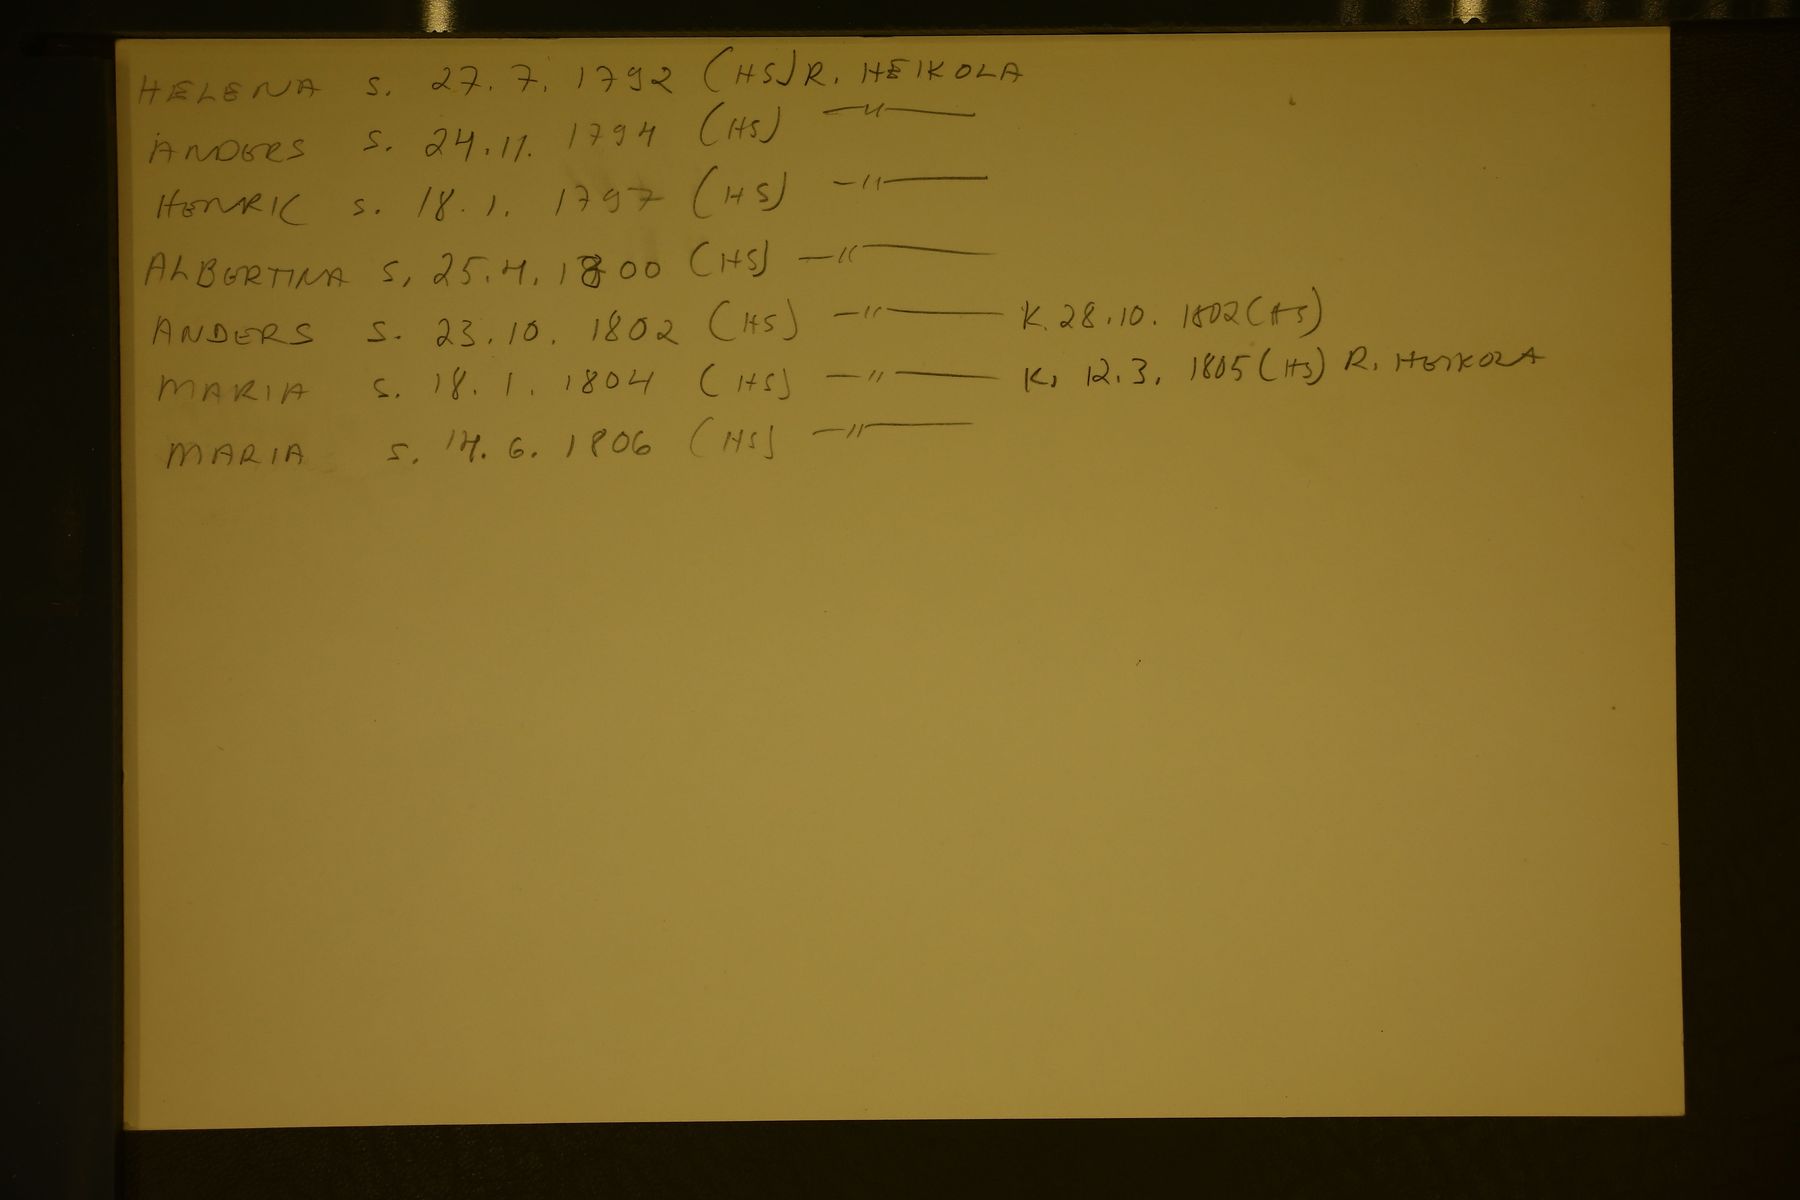 HELENA s. 27. 7. 1792 (HS) R. HEIKOLA
ANDERS s. 24.11. 1794 (HS) —"—
HENRIC s. 18.1. 1797 (HS) —"—
ALBERTINA s. 25.4. 1800 (HS) —"—
ANDERS s. 23.10. 1802 (HS) —"— K. 28.10. 1802 (HS)
MARIA s. 18.1. 1804 (HS) —"— K. 12.3. 1805 (HS) R. HEIKOLA
MARIA s. 14.6. 1806 (HS) —"—